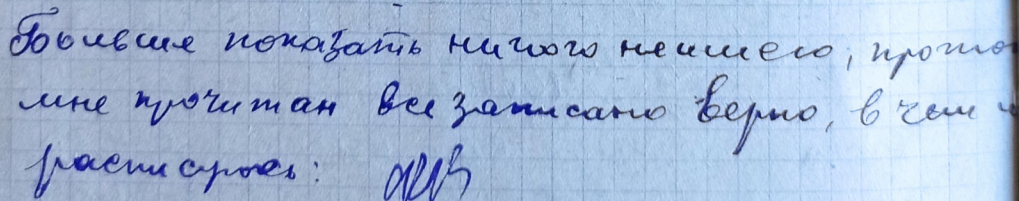 Больше показать ничего не имею, прото
мне прочитан все записано верно, в чем и
распишусь: